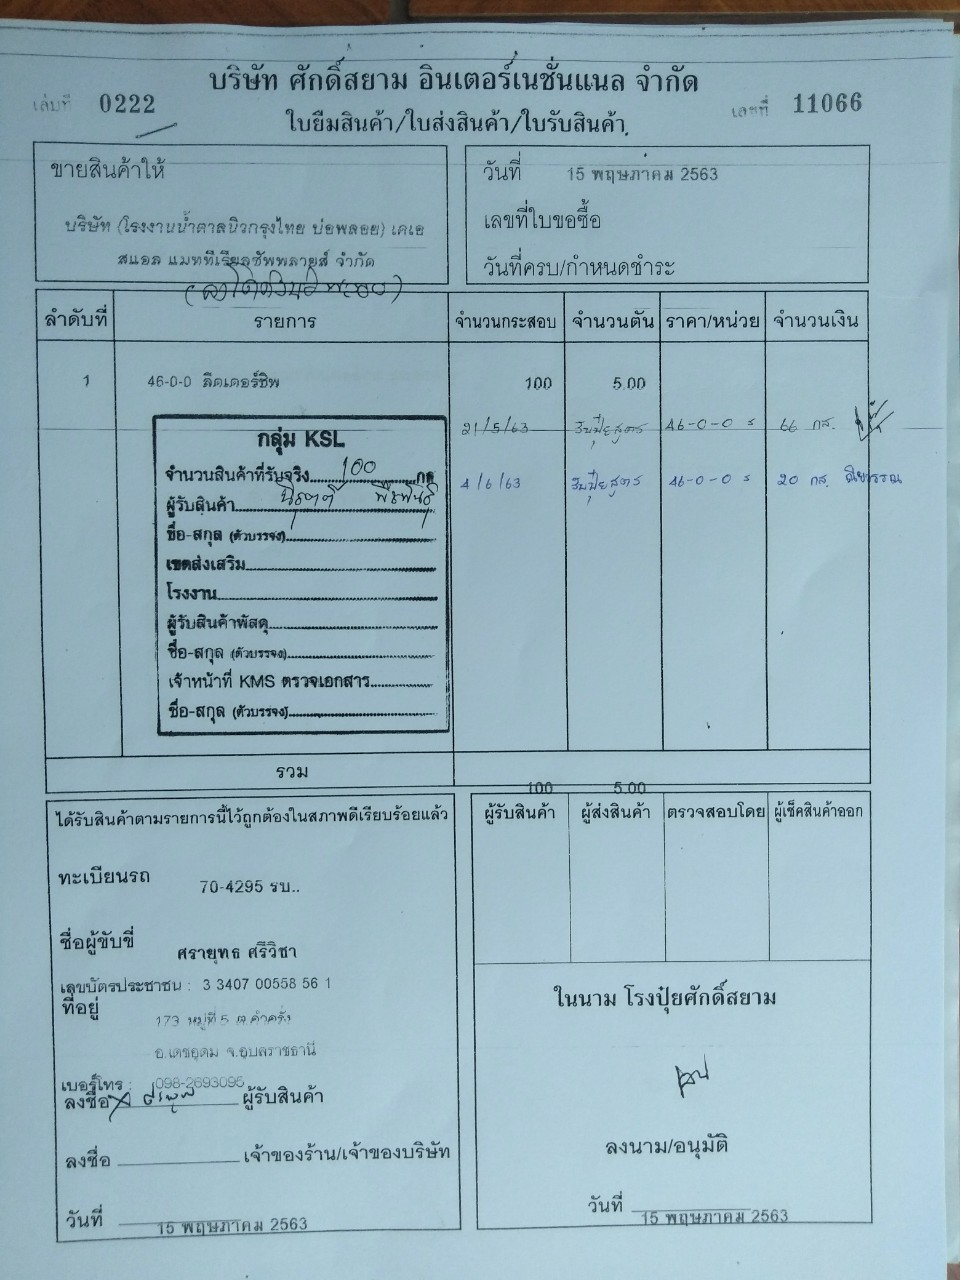 บริษัท ศักดิ์สยาม อินเตอร์เนชั่นแนล จำกัด
เล่มที่ 0222
เลขที่ 11066
ใบยืมสินค้า/ใบส่งสินค้า/ใบรับสินค้า
ขายสินค้าให้
บริษัท (โรงงานน้ำตาลนิวกรุงไทย บ่อพลอย) เคเอ
สแอล แมททีเรียลซัพพลายส์ จำกัด
วันที่ 15 พฤษภาคม 2563
เลขที่ใบขอซื้อ
วันที่ครบ/กำหนดชำระ
ลำดับที่ รายการ จำนวนกระสอบ จำนวนตัน ราคา/หน่วย จำนวนเงิน
1 46-0-0 ลิดเดอร์ชิพ 100 5.00
21/5/63 รับปุ๋ยสูตร 46-0-0 ร 66 กส.
4/6/63 รับปุ๋ยสูตร 46-0-0 ร 20 กส.
กลุ่ม KSL
จำนวนสินค้าที่รับจริง 100 กส
ผู้รับสินค้า
ชื่อ-สกุล (ตัวบรรจง)
เขตส่งเสริม
โรงงาน
ผู้รับสินค้าพัสดุ
ชื่อ-สกุล (ตัวบรรจง)
เจ้าหน้าที่ KMS ตรวจเอกสาร
ชื่อ-สกุล (ตัวบรรจง)
รวม 100 5.00
ได้รับสินค้าตามรายการนี้ไว้ถูกต้องในสภาพดีเรียบร้อยแล้ว
ทะเบียนรถ 70-4295 รบ..
ชื่อผู้ขับขี่ ศรายุทธ ศรีวิชา
เลขบัตรประชาชน : 3 3407 00558 56 1
ที่อยู่ 173 หมู่ที่ 5 ต.คำครั่ง
อ.เดชอุดม จ.อุบลราชธานี
เบอร์โทร : 098-2693095
ลงชื่อ ผู้รับสินค้า
ลงชื่อ เจ้าของร้าน/เจ้าของบริษัท
วันที่ 15 พฤษภาคม 2563
ผู้รับสินค้า ผู้ส่งสินค้า ตรวจสอบโดย ผู้เช็คสินค้าออก
ในนาม โรงปุ๋ยศักดิ์สยาม
ลงนาม/อนุมัติ
วันที่ 15 พฤษภาคม 2563